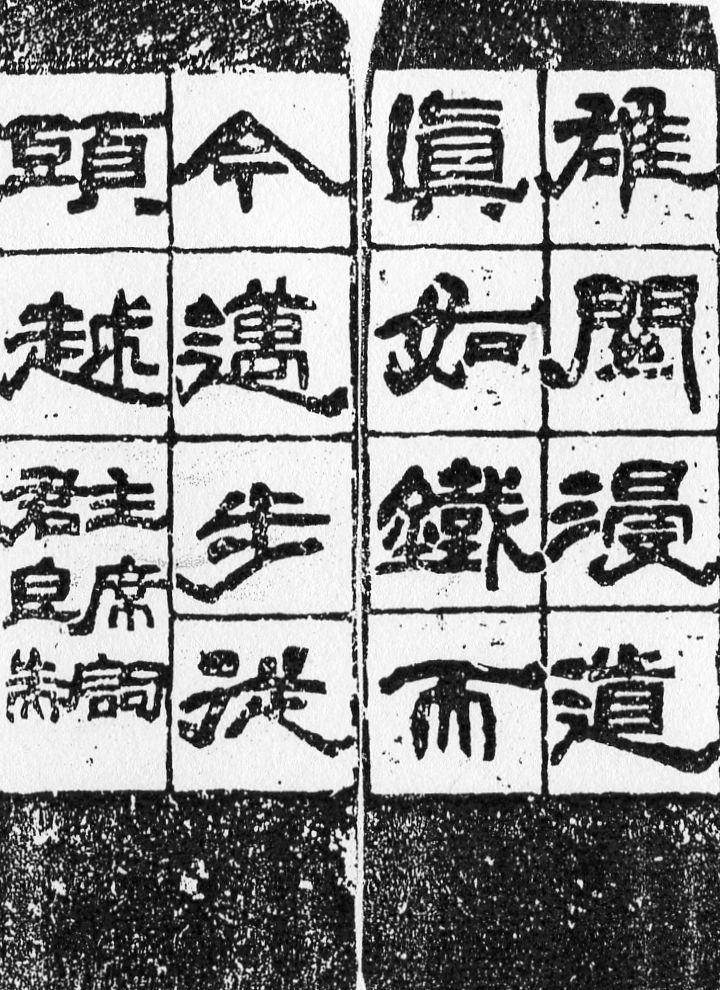 雄關漫道
眞如鐵而
今邁步從
頭越
主席詞
君